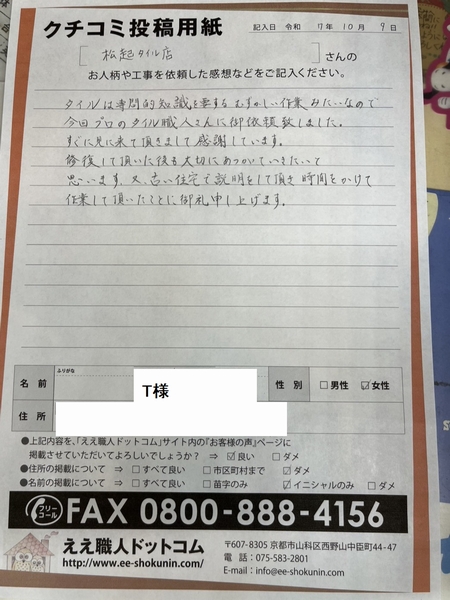 クチコミ投稿用紙
記入日 令和 7年 10月 9日
[松起タイル店]さんの
お人柄や工事を依頼した感想などをご記入ください。
タイルは専門的知識を要するむずかしい作業みたいなので
今回プロのタイル職人さんに御依頼致しました。
すぐに見に来て頂きまして感謝しています。
修復して頂いた後も大切にあつかっていきたいと
思います。又、古い住宅で説明をして頂き時間をかけて
作業して頂いたことに御礼申し上げます。
ふりがな
名前 T様 性別 □男性 ☑女性
住所
●上記内容を、「ええ職人ドットコム」サイト内の『お客様の声』ページに
掲載させていただいてよろしいでしょうか? ⇒ ☑良い □ダメ
●住所の掲載について ⇒ □すべて良い □市区町村まで ☑ダメ
●名前の掲載について ⇒ □すべて良い □苗字のみ ☑イニシャルのみ □ダメ
フリーコール FAX 0800-888-4156
ええ職人ドットコム
http://www.ee-shokunin.com/
〒607-8305 京都市山科区西野山中臣町44-47
電話:075-583-2801
E-mail:info@ee-shokunin.com